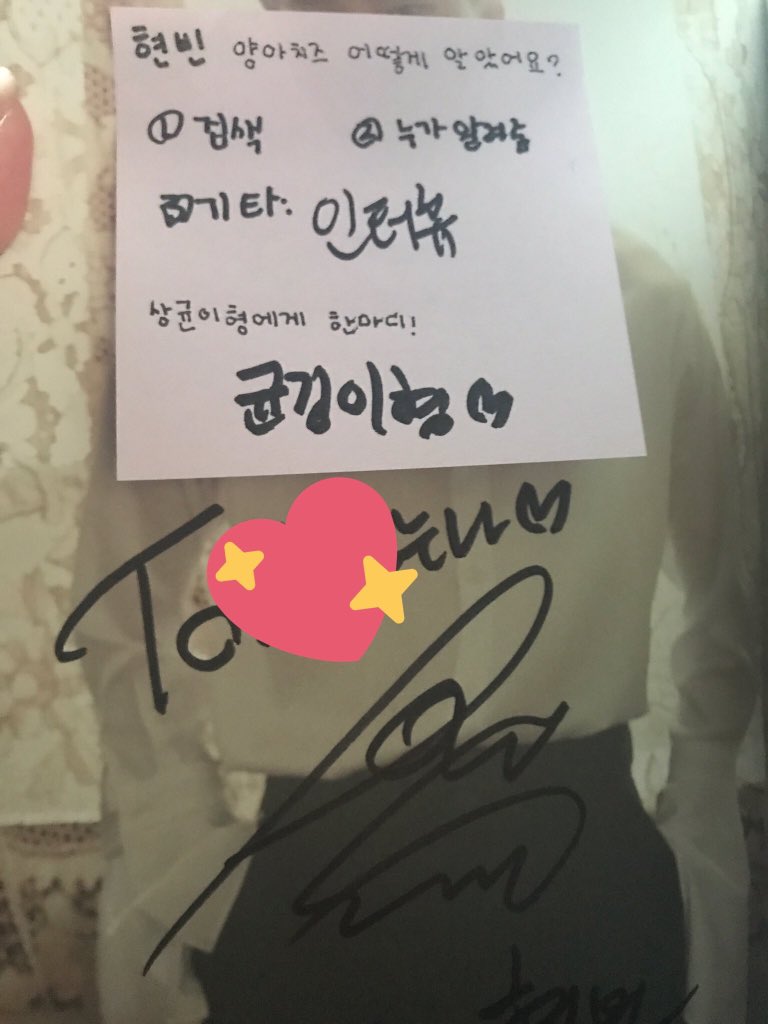 현빈 양아치즈 어떻게 알았어요?
① 검색 ② 누가 알려줌
③ 기타: 인터뷰
상균이형에게 한마디!
균깅이형♡
To. 누나♡